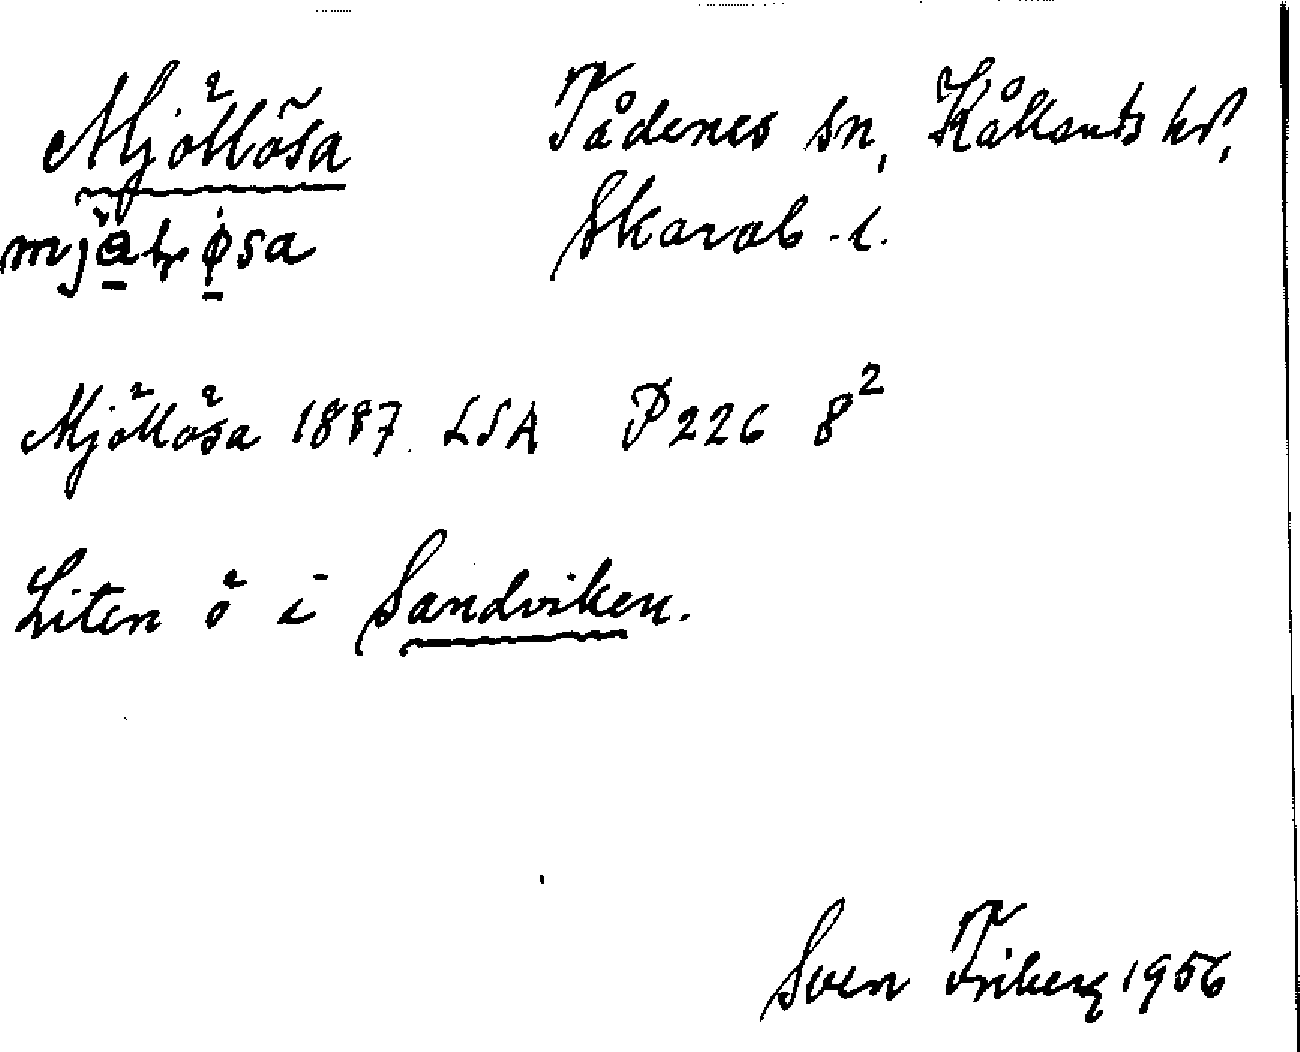 Mjöllösa Tådenes sn, Kållands hd,
Skarab. l.
Mjöllösa 1887. LSA P226 8²
Liten ö i Sandviken.
Sven Friberg 1956